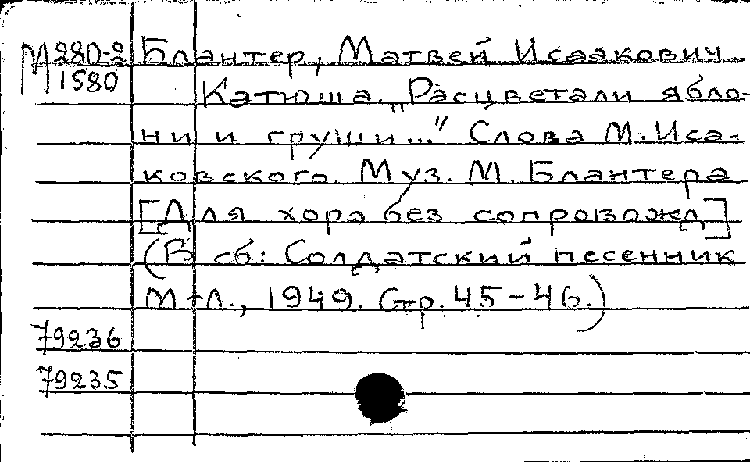 М 280-2 Блантер, Матвей Исаакович
1580 Катюша. „Расцветали ябло-
ни и груши..." Слова М. Иса-
ковского. Муз. М. Блантера
[Для хора без сопровожд]
(В сб: Солдатский песенник
М-Л., 1949. Стр. 45-46.)
79236
79235